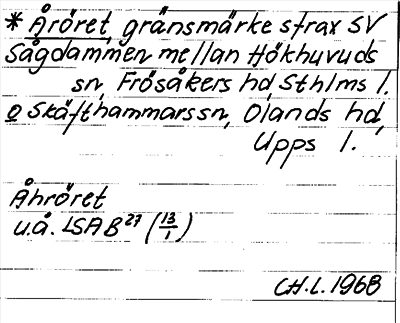 * Åröret, gränsmärke strax SV
Sågdammen mellan Hökhuvuds
sn, Frösåkers hd Sthlms l.
o Skäfthammars sn, Olands hd,
Upps l.
Åhröret
u.å. LSA B27 (13/1)
CH.L. 1968